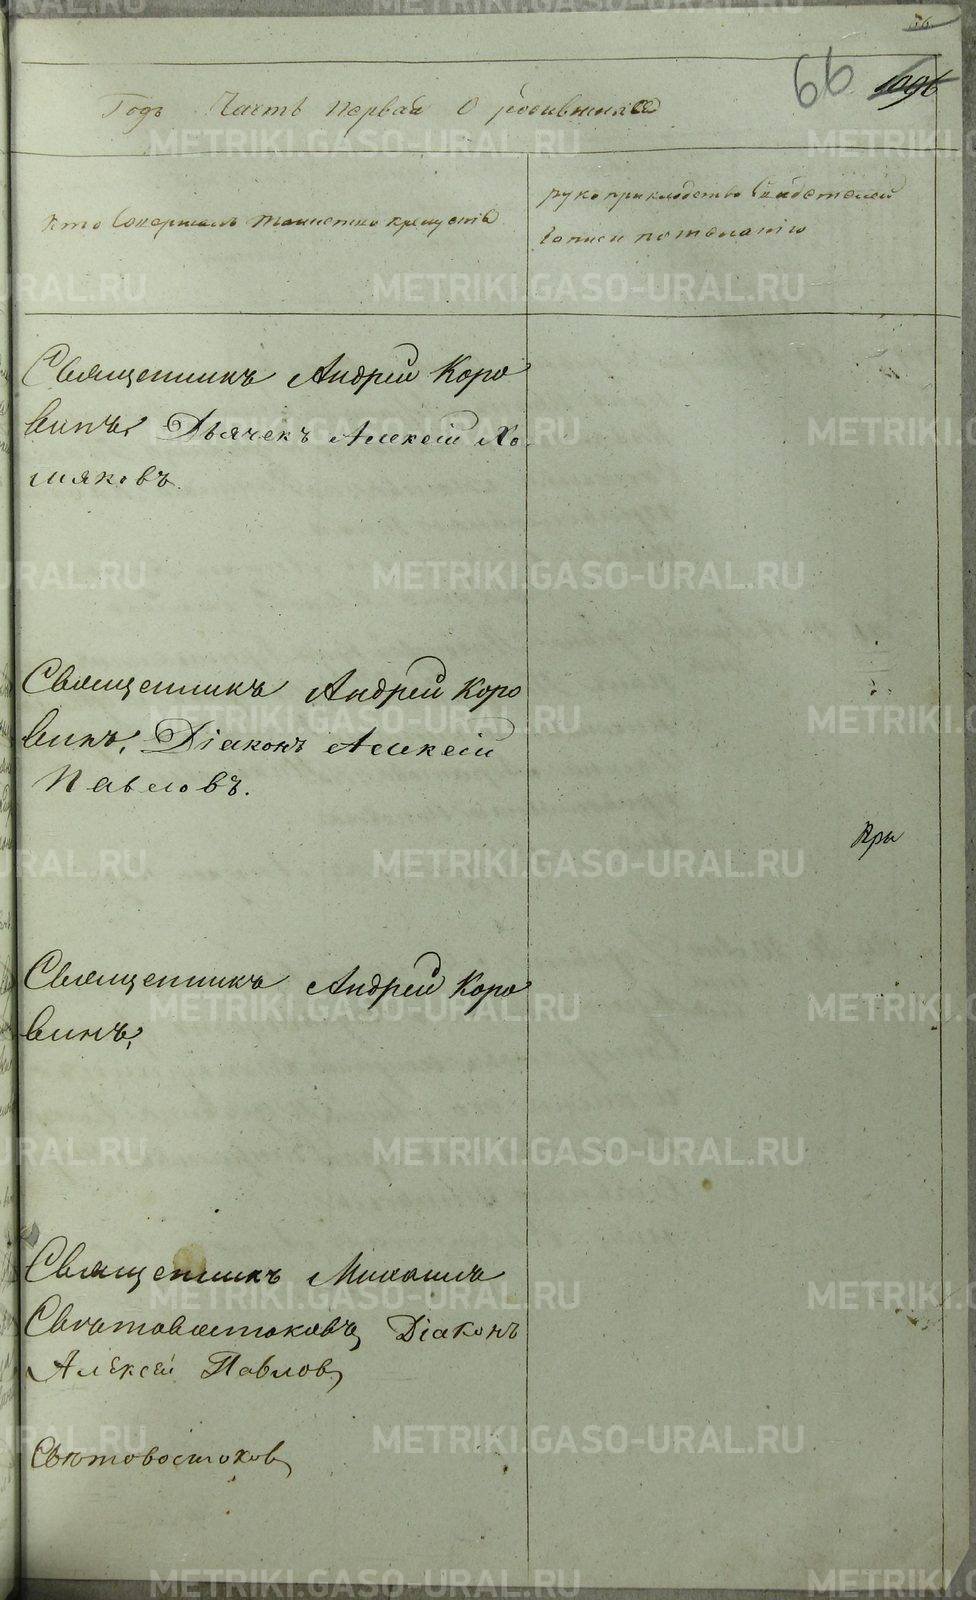 56
66 1096
Годъ Часть Первая О родившихся
кто Совершалъ таинство крещенія
рукоприкладство Свидетелей
Записи по желанію
Священникъ Андрей Коро
винъ, Дьячекъ Алексій Хо
мяковъ.
Священникъ Андрей Коро
винъ, Діаконъ Алексій
Павловъ.
Пры
Священникъ Андрей Коро
винъ,
Священникъ Михаилъ
Святовостоковъ, Діаконъ
Алексей Павлов,
Святовостоков,
METRIKI.GASO-URAL.RU